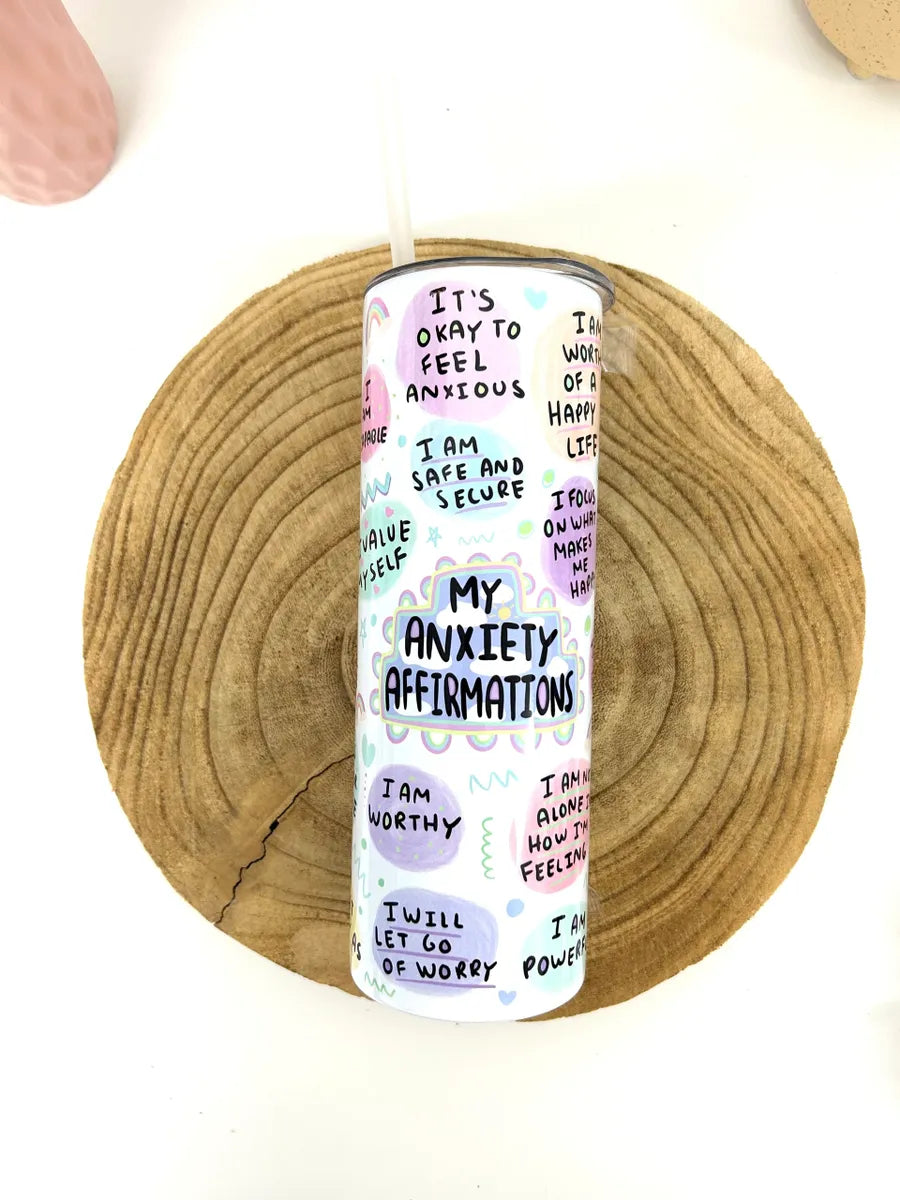 IT'S
OKAY TO
FEEL
ANXIOUS
I AM
OF A
HAPPY
LIFE
I
I AM
SAFE AND
SECURE
I FOCUS
ON WHAT
MAKES
ME
VALUE
MYSELF
MY
ANXIETY
AFFIRMATIONS
I AM
WORTHY
I AM
ALONE
HOW I'M
FEELING
I WILL
LET GO
OF WORRY
I AM